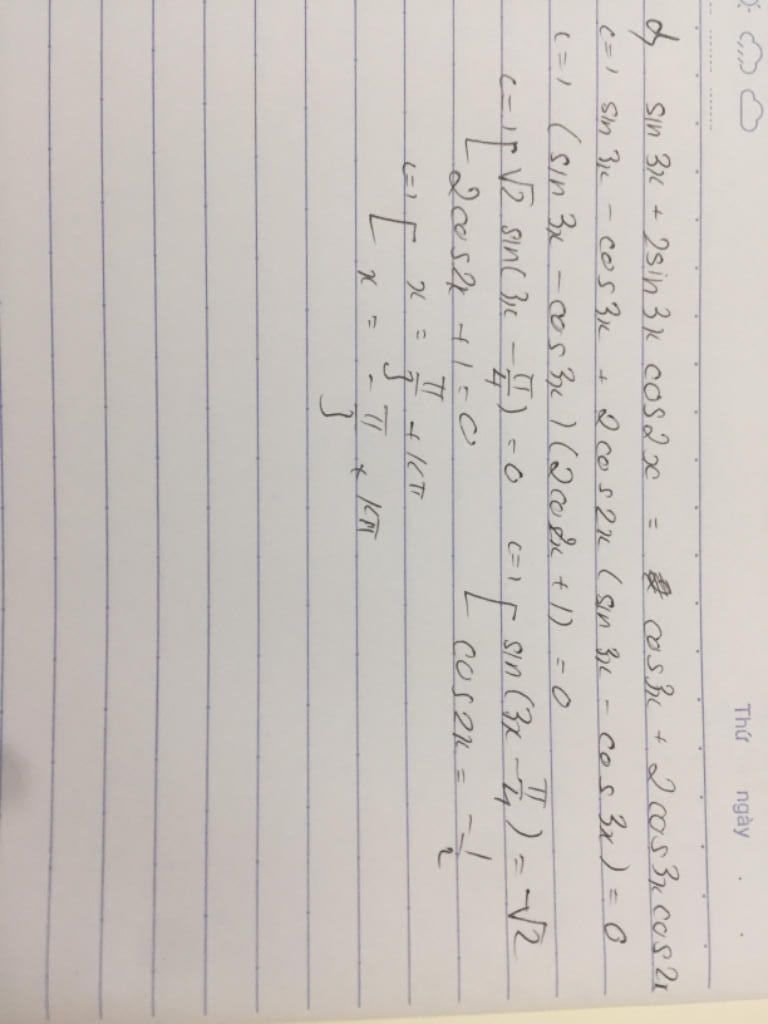 Thứ ngày . .
d, sin 3x + 2sin 3x cos2x = cos3x + 2cos3x cos2x
<=> sin 3x - cos3x + 2cos2x (sin 3x - cos 3x) = 0
<=> (sin 3x - cos3x) (2cos2x + 1) = 0
<=> [ √2 sin(3x - π/4) = 0 <=> [ sin(3x - π/4) = -√2
2cos2x + 1 = 0 cos2x = -1/2
<=> [ x = π/3 + kπ
x = -π/3 + kπ